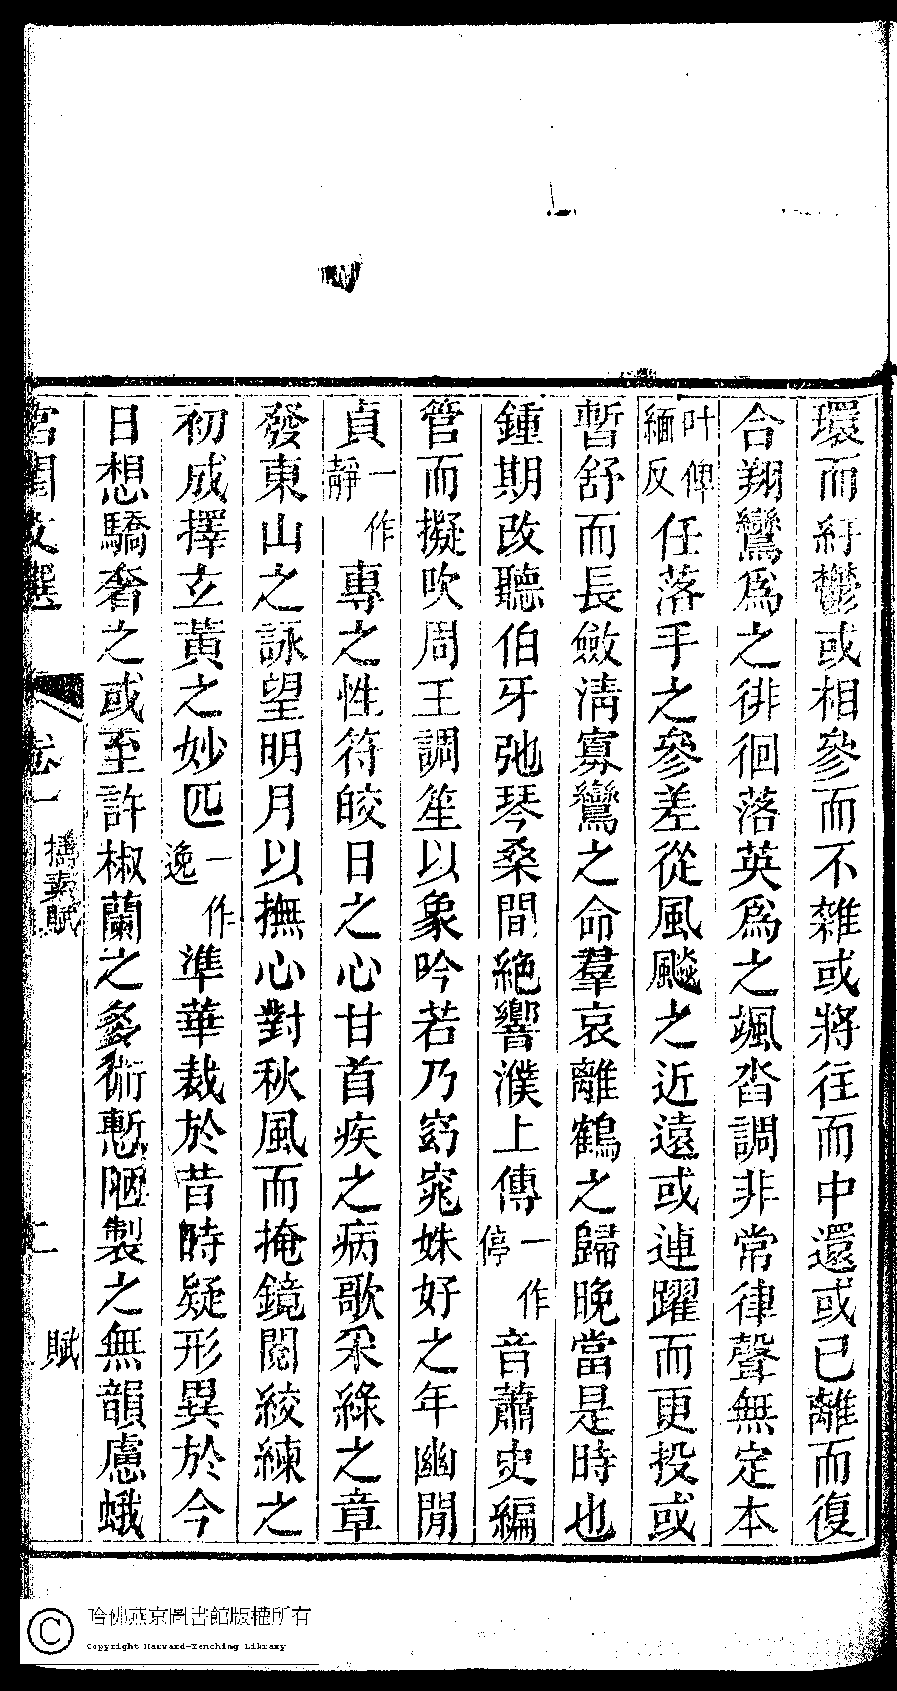 環而紆鬱或相參而不雜或將往而中還或已離而復
合翔鸞爲之徘徊落英爲之颯沓調非常律聲無定本
叶俾緬反任落手之參差從風飈之近遠或連躍而更投或
暫舒而長斂清寡鸞之命羣哀離鶴之歸晚當是時也
鍾期改聽伯牙弛琴桑間絕響濮上傳一作停音蕭史編
管而擬吹周王調笙以象吟若乃窈窕姝好之年幽閒
貞一作靜專之性符皎日之心甘首疾之病歌采綠之章
發東山之詠望明月以撫心對秋風而掩鏡閱絞練之
初成擇玄黃之妙匹一作逸準華裁於昔時疑形異於今
日想驕奢之或至許椒蘭之多術慙陋製之無韻慮蛾
宮閨文選
卷一
擣素賦
上
賦
哈佛燕京圖書館版權所有
Copyright Harvard-Yenching Library